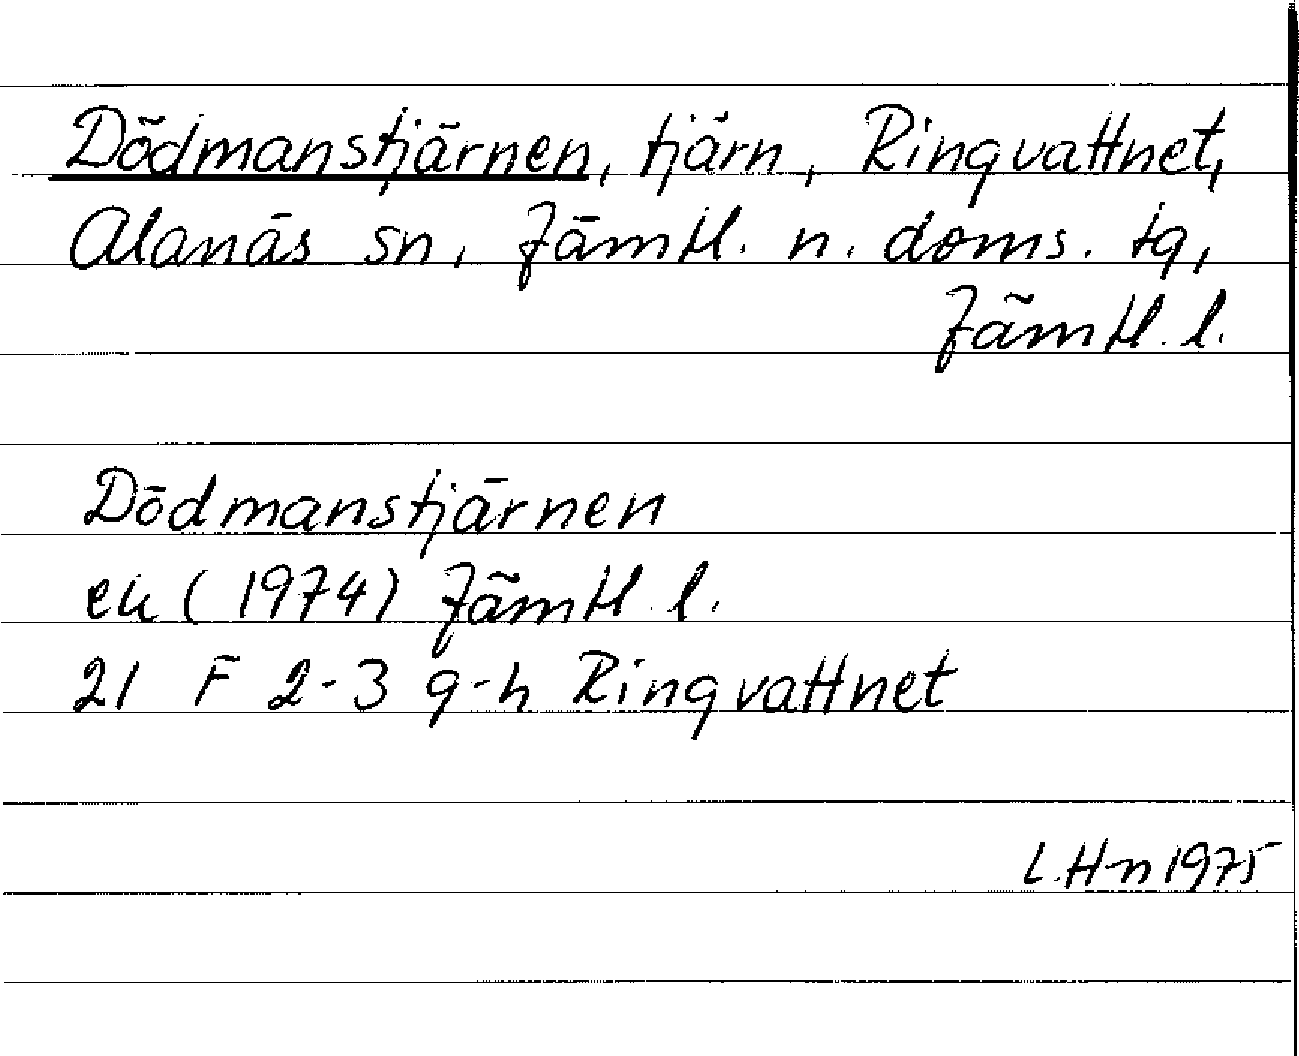 Dödmanstjärnen, tjärn, Ringvattnet,
Alanäs sn, Jämtl. n. doms. tg,
Jämtl. l.
Dödmanstjärnen
ek (1974) Jämtl. l.
21 F 2-3 g-h Ringvattnet
L.H-n 1975